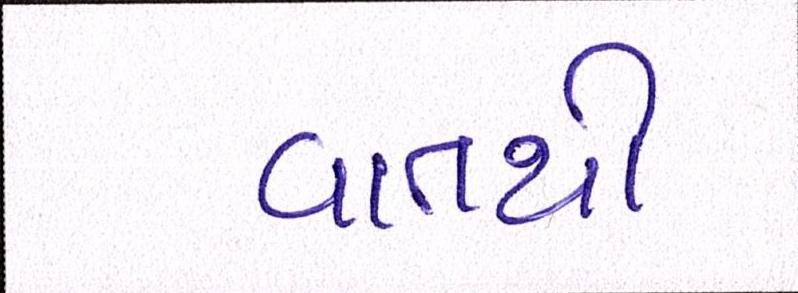 વાતથી